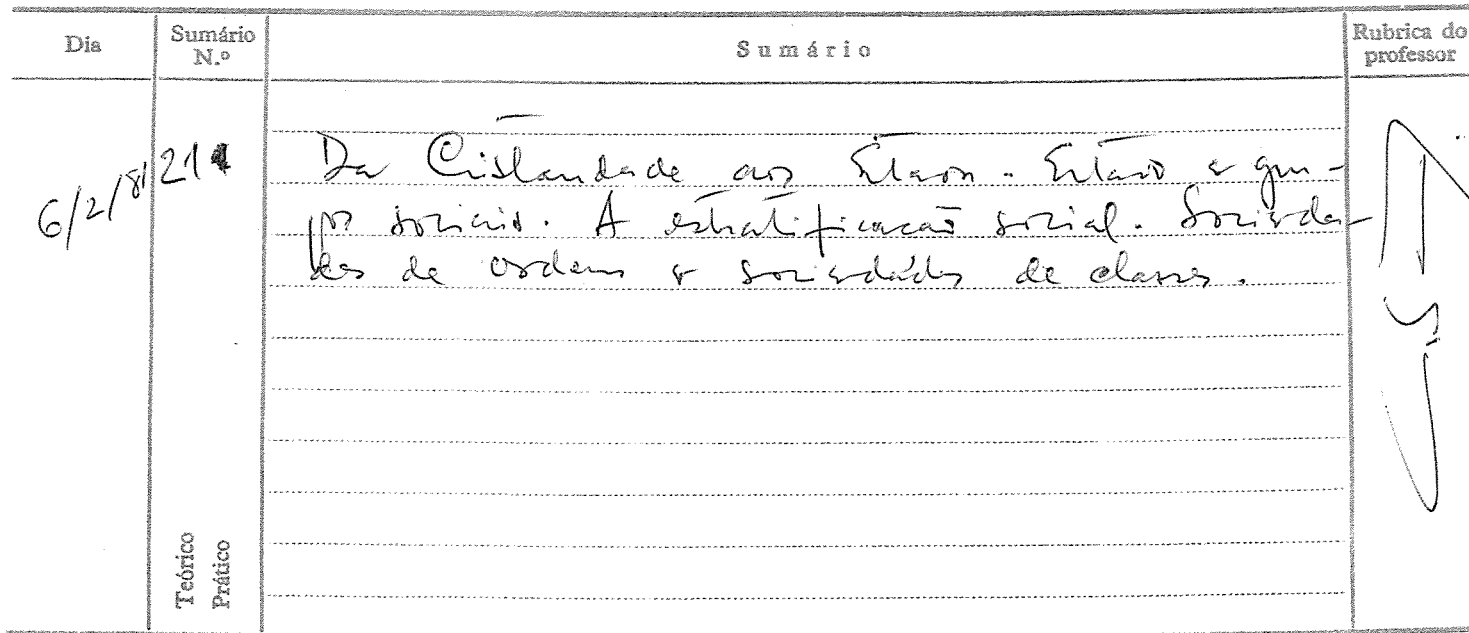 Dia
Sumário N.º
Sumário
Rubrica do professor
6/2/81
21
Da Cristandade aos Estados. Estado e gru-
pos sociais. A estratificação social. Socieda-
des de ordens e sociedades de classes.
Teórico
Prático